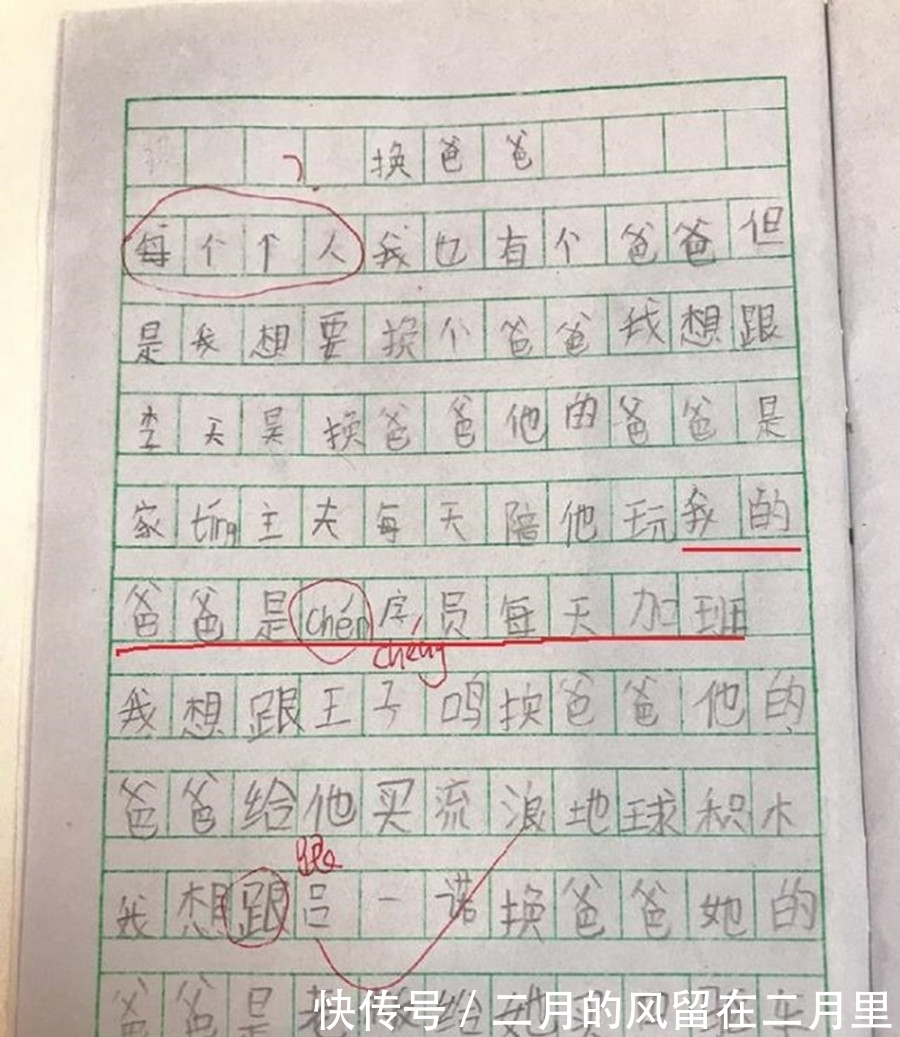 换爸爸
每个个人我也有个爸爸但
是我想要换个爸爸我想跟
李天昊换爸爸他的爸爸是
家tíng主夫每天陪他玩我的
爸爸是chén序员每天加班
chéng
我想跟王子鸣换爸爸他的
爸爸给他买流浪地球积木
跟
我想跟吕一诺换爸爸她的
爸爸是老给她
快传号/二月的风留在二月里